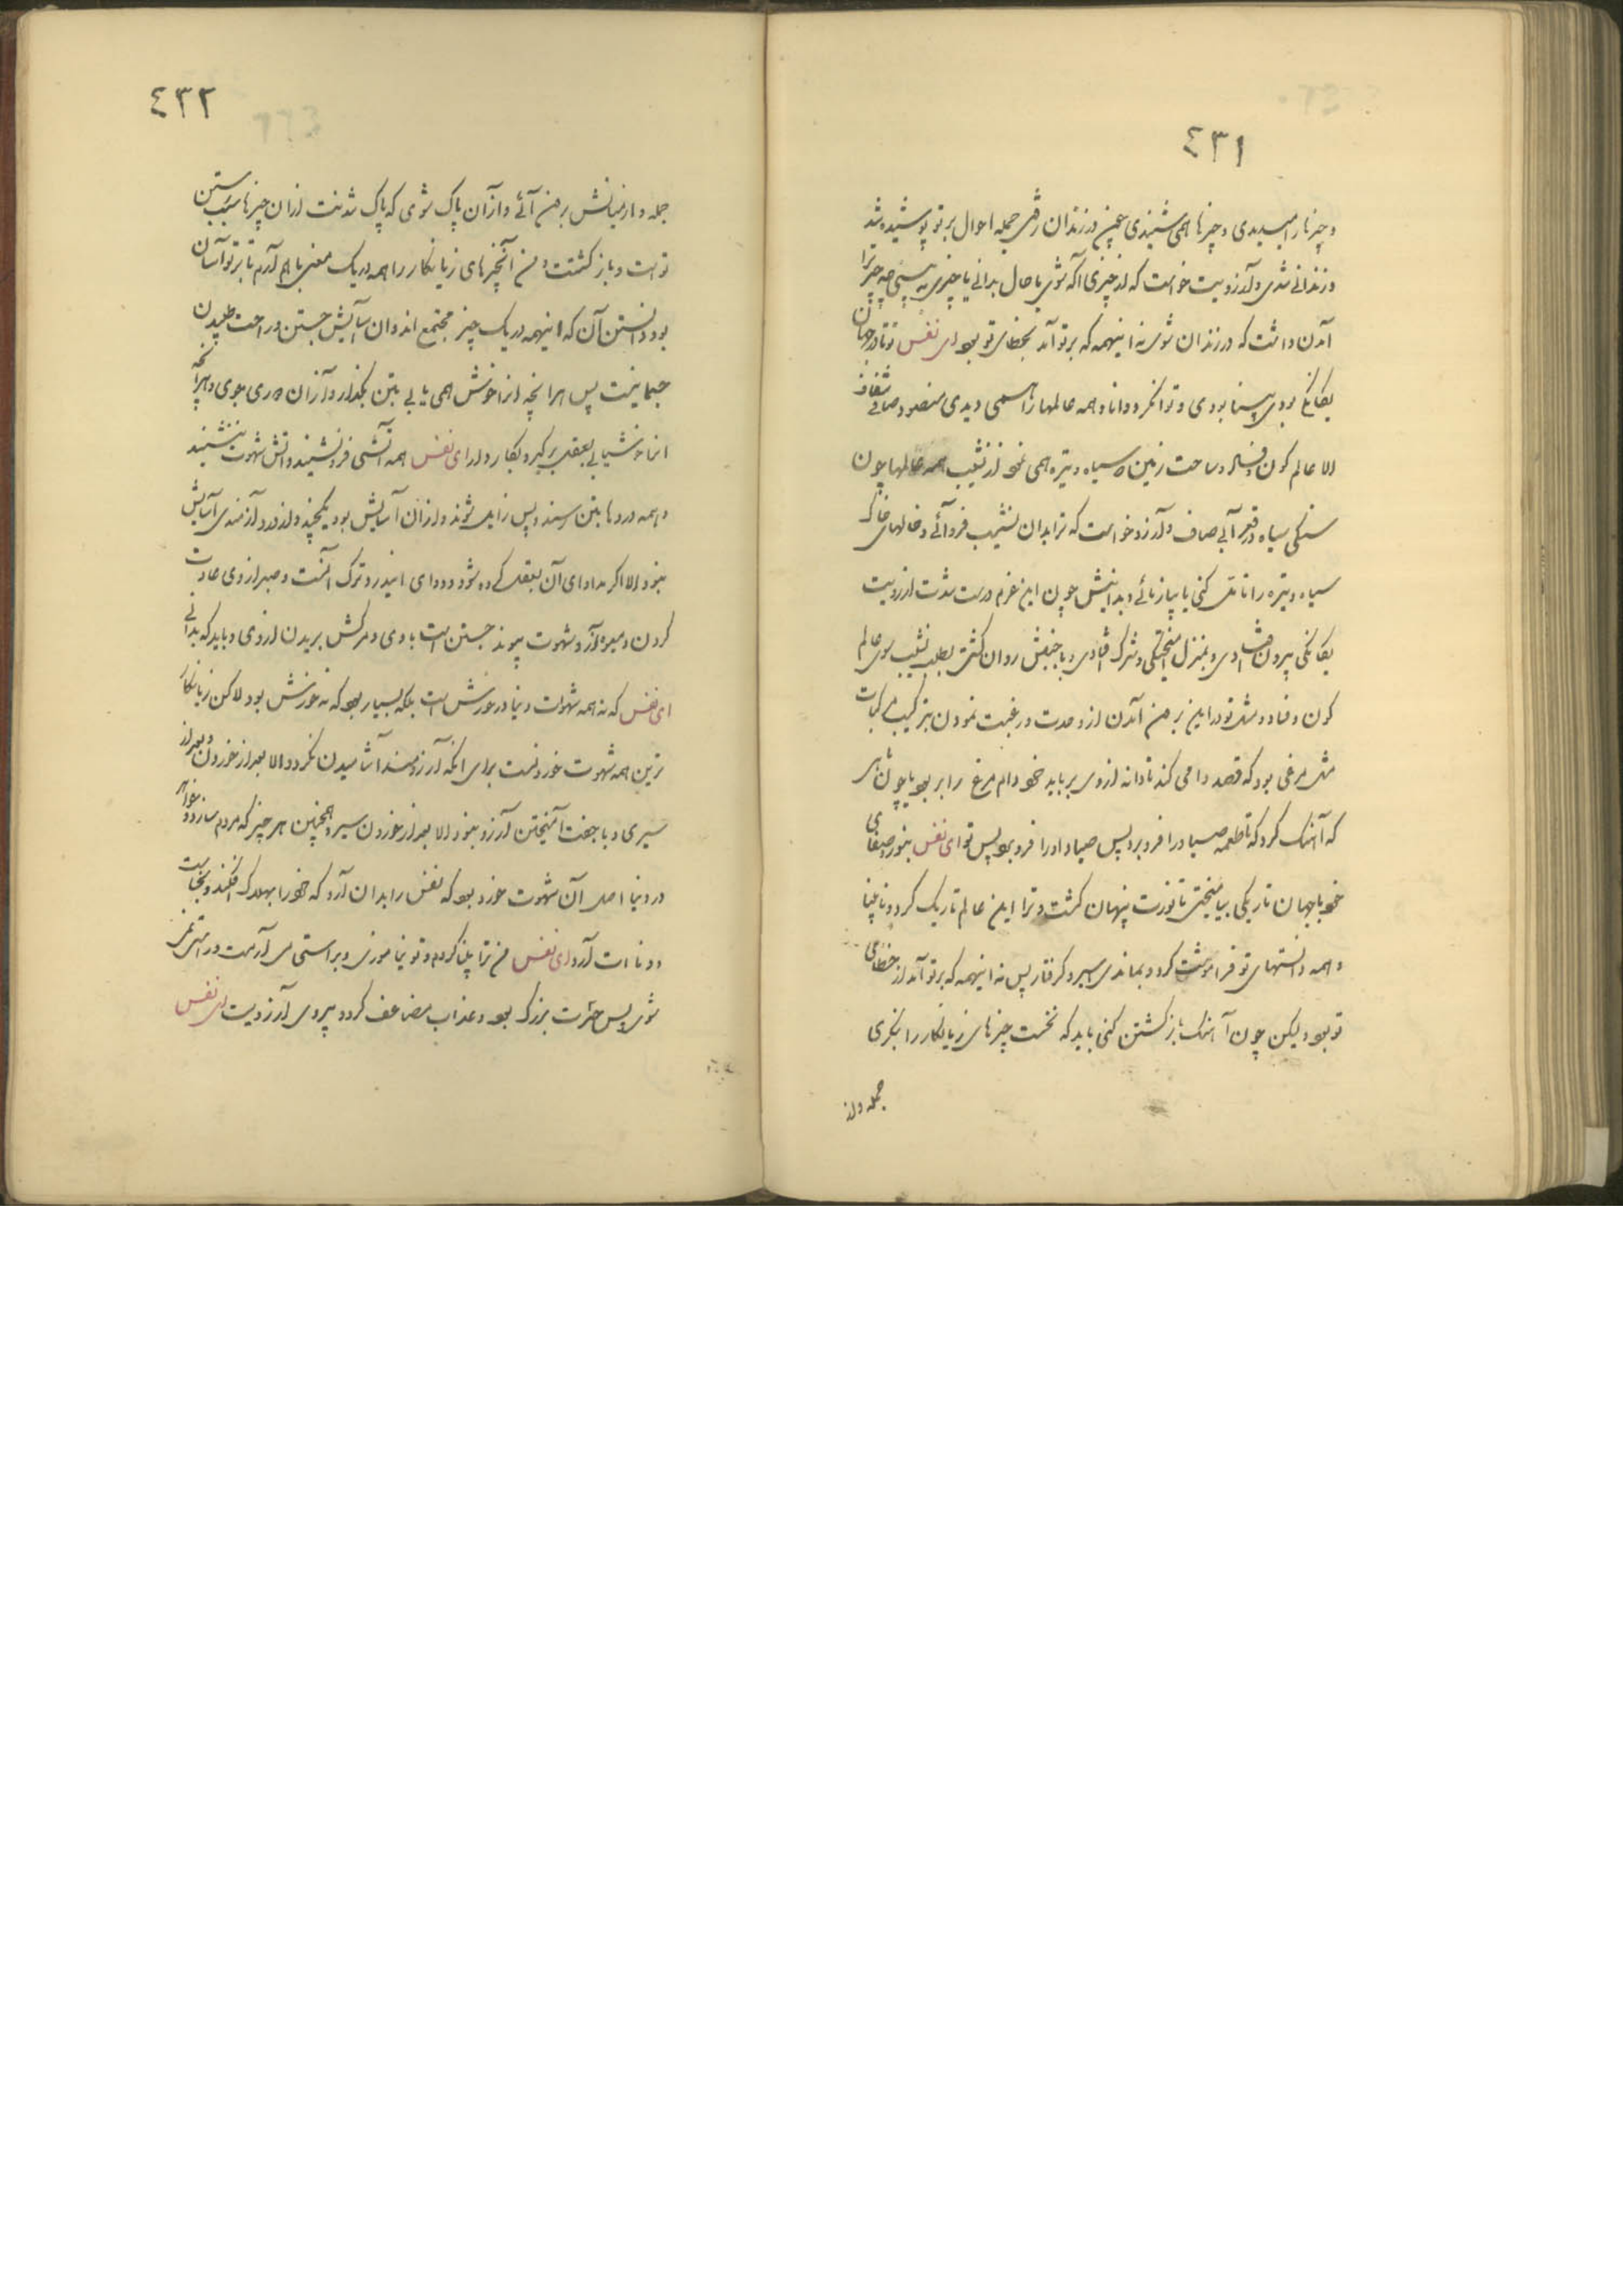 ٤٣١
و چیزها را میدیدی و چیزها همی شنیدی همچنین در زندان رفتی جمله احوال بر تو پوشیده شد
و زندانی شدی و آرزویت خواست که از چیزی آگه شوی یا حال بدانی یا چیزی به بینی چه چیز ترا
آن داشت که در زندان شوی نه اینهمه که بر تو آمد بخطای تو بود ای نفس تو تا در جهان
یگانگی بودی بینا بودی و توانگر و دانا و همه عالمها را همی دیدی منضود صافی شفاف
الا عالم کون و فساد و ساحت زمین که سیاه و تیره همی نمود از نشیب همه عالمها چون
سنگی سیاه در قعر آبی صاف و آرزو خواست که ترا بدان نشیب فرو آئی و خالهای خاک
سیاه و تیره را تأمل کنی یا بیازمائی و بدانیش چون این عزم درست شدت از زیب
یگانگی بیرون افتادی و بمنزل آمیختگی و شرک افتادی و با جنبش روان گشتی بطلب نشیب سوی عالم
کون و فساد و مثل تو در این بر من آمدن از وحدت و رغبت نمودن بترکیب مرکبات
مثل مرغی بود که قصد دامی کند تا دانه از وی برباید خود دام مرغ را برباید یا چون ماهی
که آهنگ کرد که تا طعمه صیاد را فرو برد پس صیاد او را فرو برد پس تو ای نفس بنور و صفای
خود با جهان تاریکی بیامیختی تا نورت پنهان گشت و ترا این عالم تاریک کرد و نابینا
و همه دانستهای تو فراموشت کرد و بماندی اسیر و گرفتار پس نه اینهمه که بر تو آمد از خطای
تو بود و لیکن چون آهنگ بازگشتن کنی باید که نخست چیزهای زیانکار را بنگری
جمله و از
٤٣٢
جمله و از میانش بر من آئی و از آن پاک شوی که پاک شدنت از آن چیزها سبب رستن
تو است و بازگشتت و من آنچیزهای زیانکار را همه در یک معنی با هم آرم تا بر تو آسان
بود دانستن آن که اینهمه در یک چیز مجتمع اند و آن آسایش جستن و راحت طلبیدن
جسمانیست پس هر آنچه از ناخوش همی یابی بتن بگذار و از آن دوری جوی و هر آنچه
از ناخوش یابی بعقل برگیر و بکار دار ای نفس همه آتشی فرو نشیند و آتش شهوت ننشیند
و همه دردها بتن رسند و پس زایل شوند و از آن آسایش بود یکچند و از درد آرزمندی آسایش
نبود الا اگر مداوای آن بعقل کرده شود و دوای این درد ترک آنست و صبر از وی عادت
کردن و میوه آز و شهوت پیوند جستن است با وی و مرگش بریدن از وی و باید که بدانی
ای نفس که نه همه شهوات دنیا در خورش است بلکه بسیار بود که نه خورش بود لاکن زیانکار
ترین همه شهوت خوردنست برای آنکه آرزومند آشامیدن نگردد الا بعد از خوردن و بعد از
سیری و با جفت آمیختن آرزو نبود الا بعد از خوردن سیر و همچنین هر چیز که مردم سازد و خواهد
در دنیا اصل آن شهوت خورد بود که نفس را بدان آرد که خود را بهلاک افکند و نجاست
و دناءت آرد ای نفس من ترا پند کردم و تو نیاموزی و براستی می آرمت و در
شوی پس حسرت بزرگ بود و عذاب مضاعف گردد پیروی آرزویت ای نفس